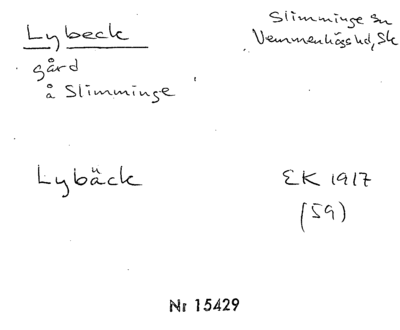 Lybeck
Slimminge sn
Vemmenhögs hd, Sk
gård
å Slimminge
Lybäck
EK 1917
(59)
Nr 15429